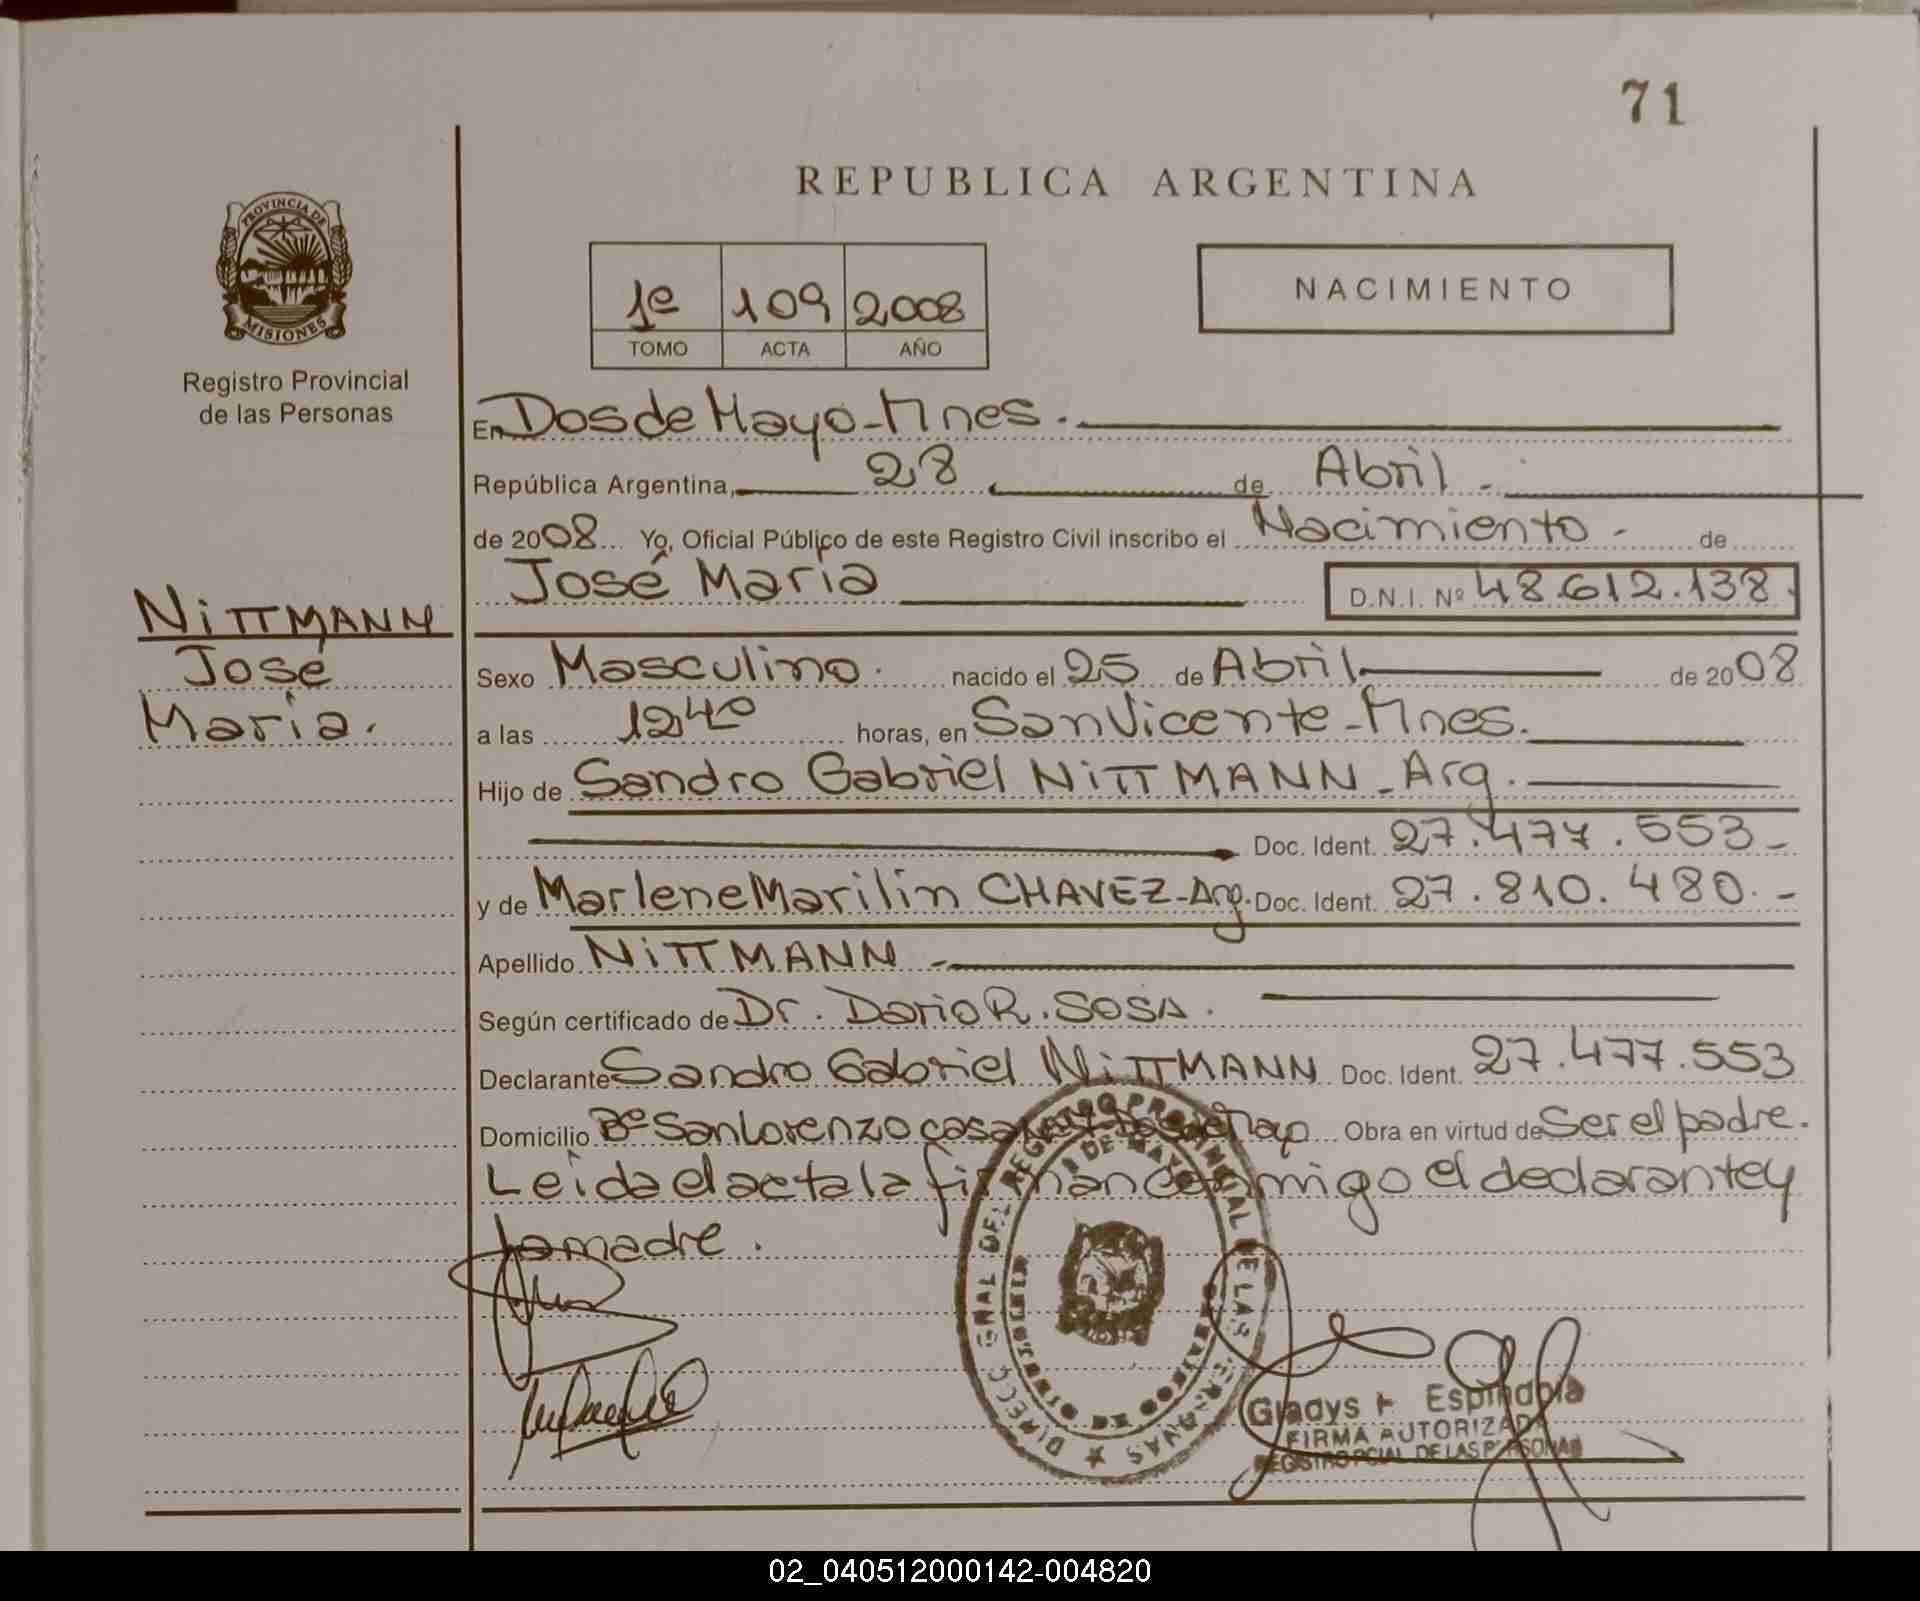 71
REPUBLICA ARGENTINA
PROVINCIA DE
MISIONES
Registro Provincial
de las Personas
1º 109 2008
TOMO ACTA AÑO
NACIMIENTO
En Dos de Mayo-Mnes.
República Argentina, 28 de Abril -
de 2008 Yo, Oficial Público de este Registro Civil inscribo el Nacimiento - de
José María D.N.I. Nº 48.612.138.
NiTTMANN
José
María.
Sexo Masculino. nacido el 25 de Abril de 2008
a las 12 40 horas, en San Vicente-Mnes.
Hijo de Sandro Gabriel NiTTMANN - Arg.
Doc. Ident. 27.477.553-
y de Marlene Marilin CHAVEZ-Arg. Doc. Ident. 27.810.480.-
Apellido NiTTMANN -
Según certificado de Dr. Dario R. SOSA.
Declarante Sandro Gabriel NiTTMANN Doc. Ident. 27.477.553
Domicilio Bº San Lorenzo casa Dos de Mayo Obra en virtud de Ser el padre.
Leída el acta la firman conmigo el declarante y
la madre.
DIRECC GRAL DEL REGISTRO PROVINCIAL DE LAS PERSONAS
DE MAYO
Gladys Espindola
FIRMA AUTORIZADA
REGISTRO PCIAL DE LAS PERSONAS
02_040512000142-004820